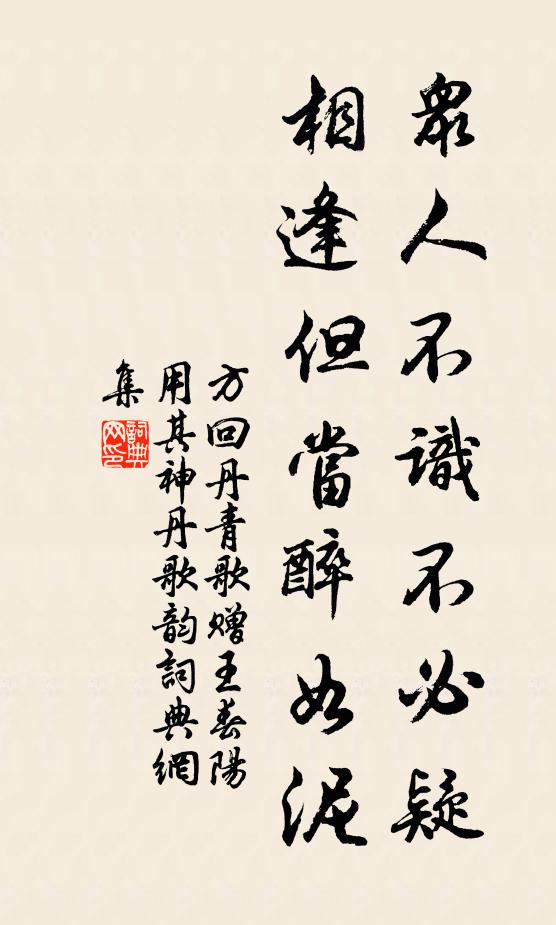 眾人不識不必疑
相逢但當醉如泥
方回丹青歌贈王春陽
用其神丹歌韵詞典網
集
詞典網印